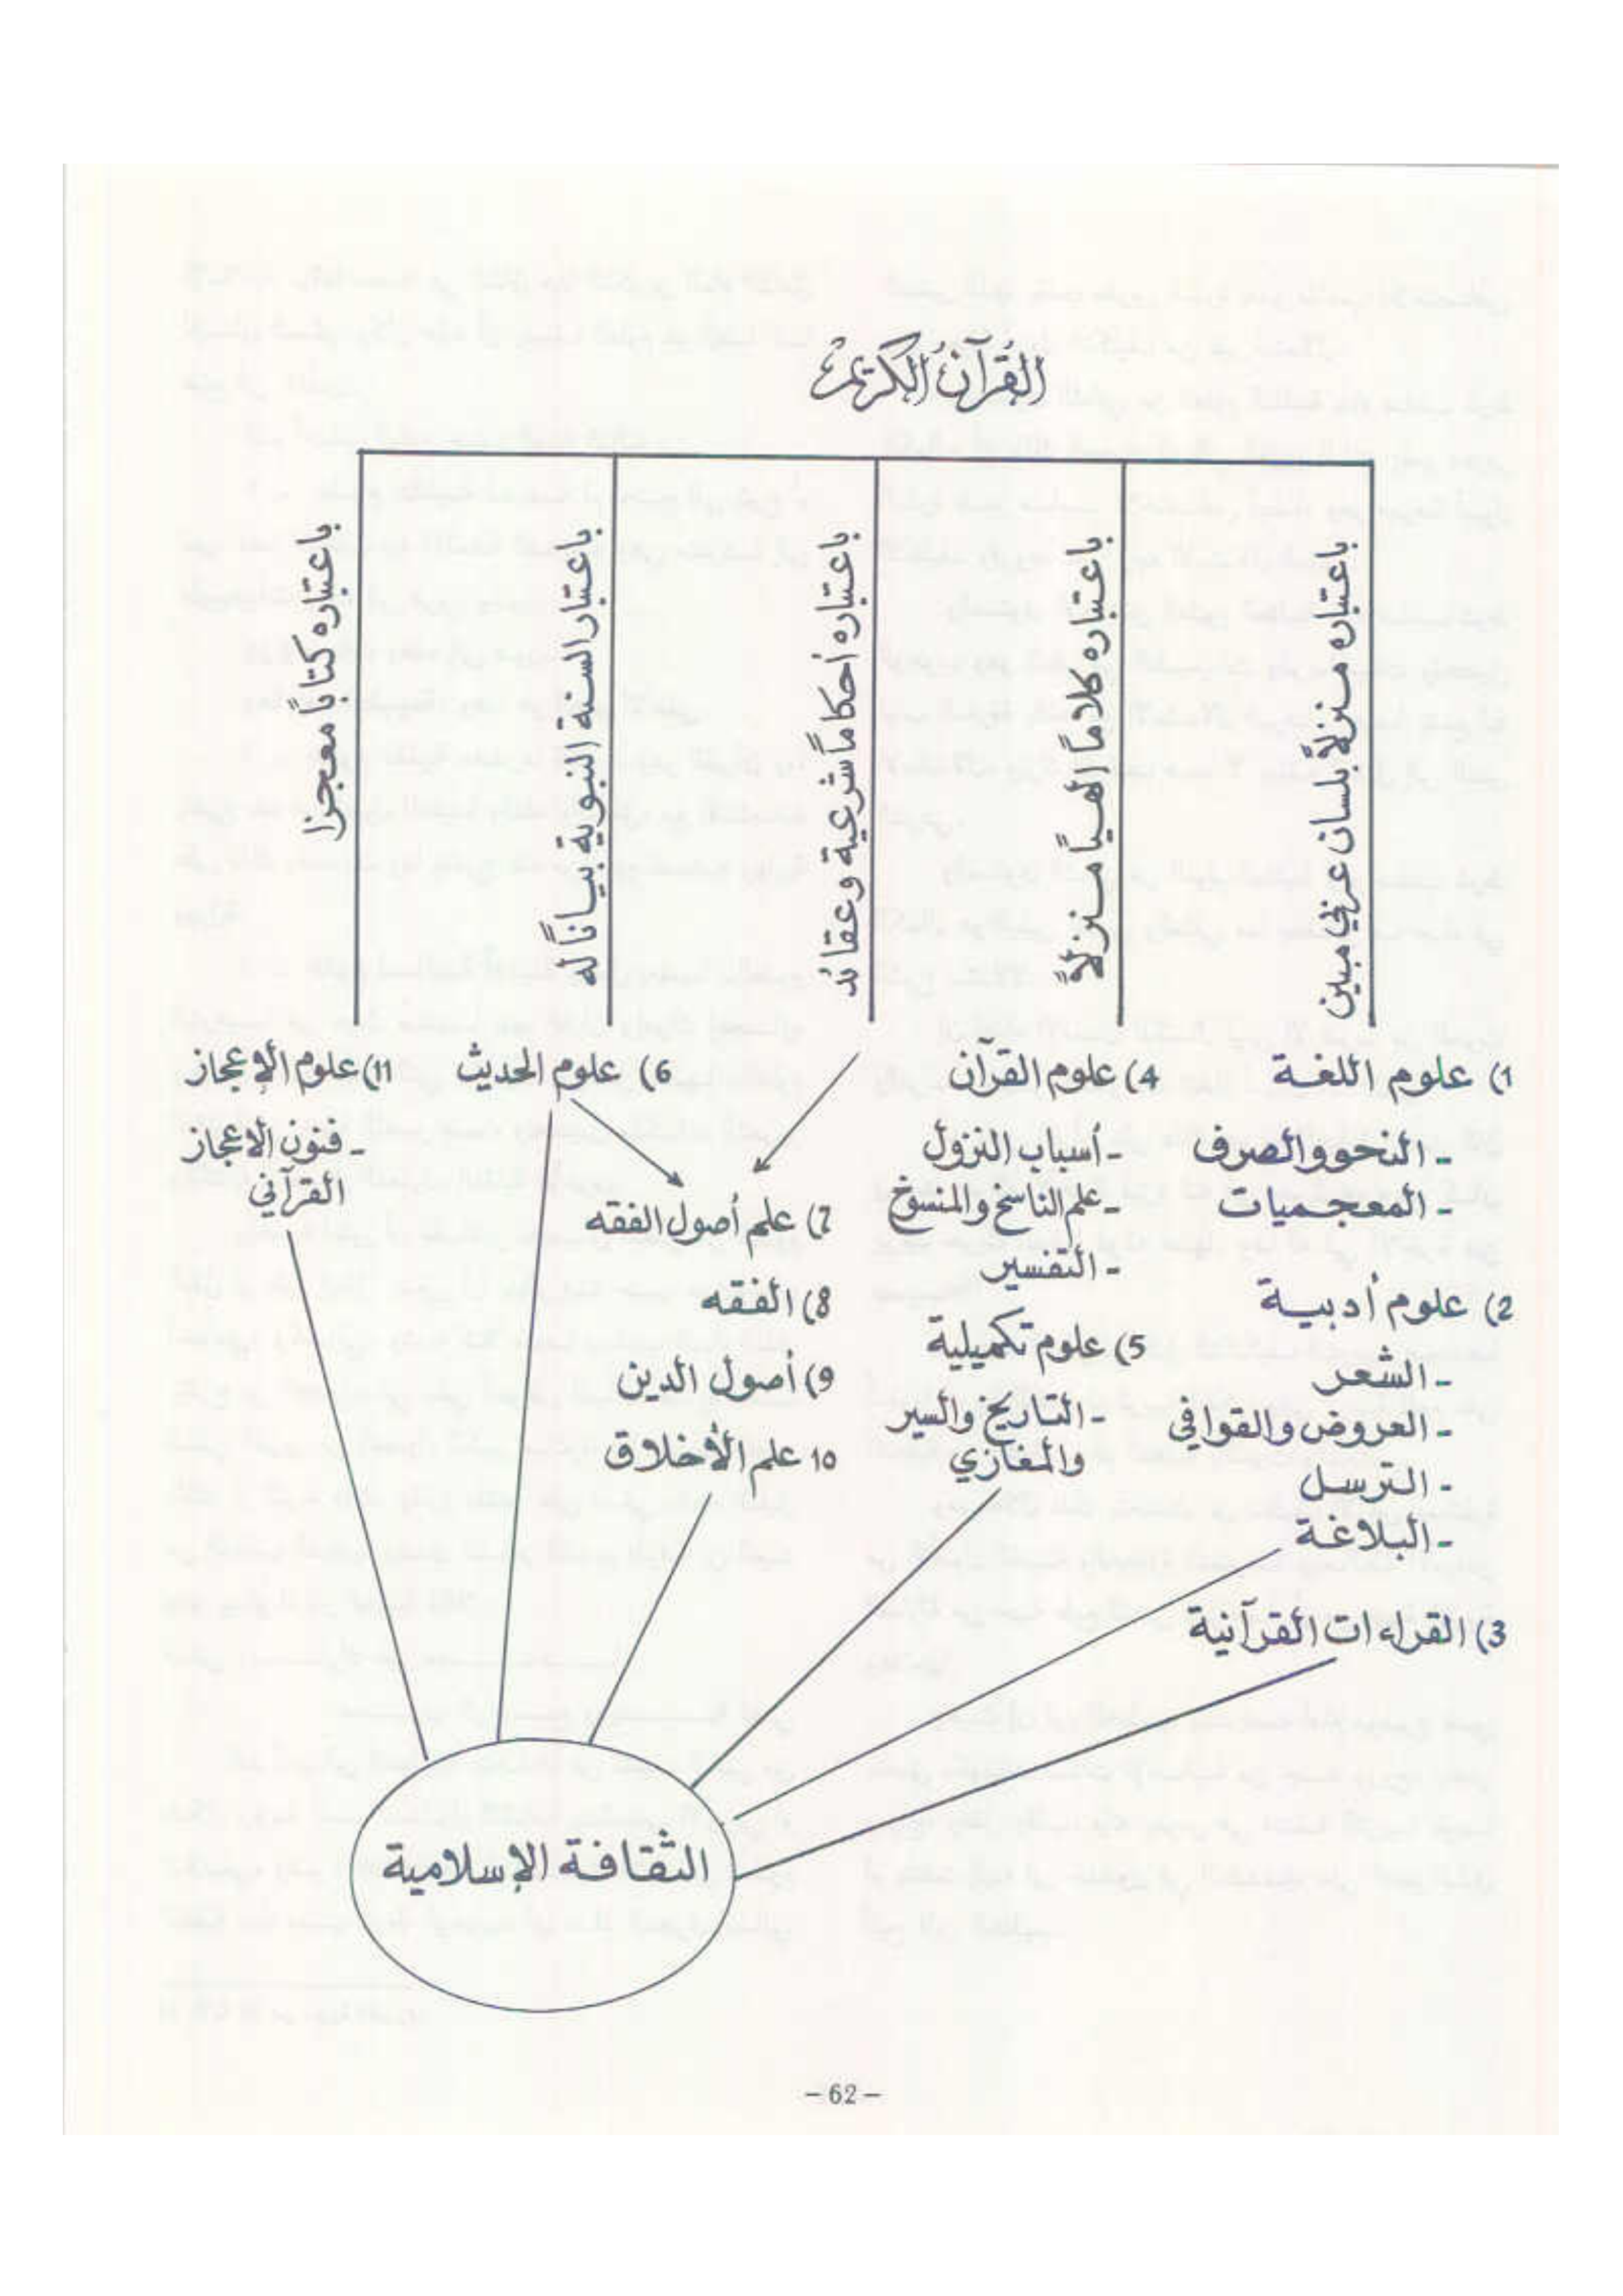 القُرآنُ الكَرِيمُ
باعتباره منزلاً بلسان عربي مبين
باعتباره كلاماً الهياً منزلاً
باعتباره أحكاماً شرعية وعقائد
باعتبار السنة النبوية بياناً له
باعتباره كتاباً معجزا
1) علوم اللغة
- النحو والصرف
- المعجميات
2) علوم أدبية
- الشعر
- العروض والقوافي
- الترسل
- البلاغة
3) القراءات القرآنية
4) علوم القرآن
- أسباب النزول
- علم الناسخ والمنسوخ
- التفسير
5) علوم تكميلية
- التاريخ والسير
والمغازي
6) علوم الحديث
7) علم أصول الفقه
8) الفقه
9) أصول الدين
10 علم الأخلاق
11) علوم الإعجاز
- فنون الاعجاز
القرآني
الثقافة الإسلامية
- 62 -